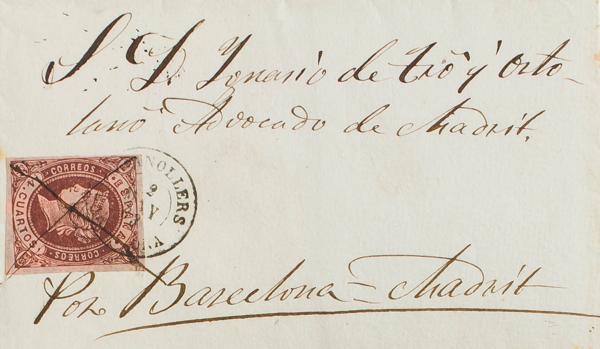 S. D. Ignasio de Tró y Orto-
lano Advocado de Madrit.
CORREOS
ESPAÑA
4 CUARTOS
CORREOS
NOLLERS
Por Barcelona = Madrit